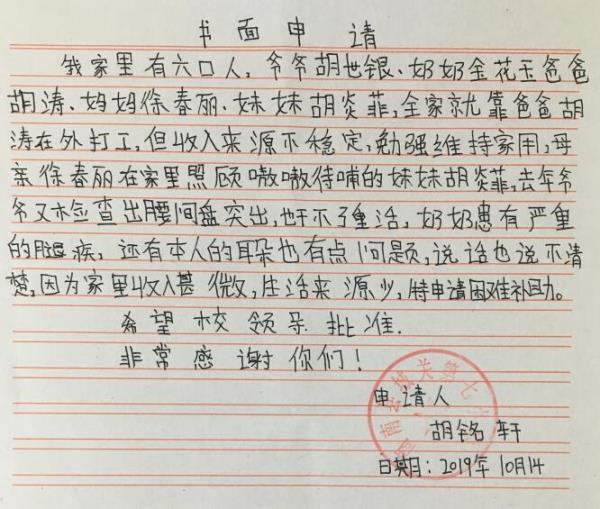 书面申请
我家里有六口人，爷爷胡世银、奶奶金花玉爸爸
胡涛、妈妈徐春丽、妹妹胡炎菲，全家就靠爸爸胡
涛在外打工，但收入来源不稳定，勉强维持家用，母
亲徐春丽在家里照顾嗷嗷待哺的妹妹胡炎菲，去年爷
爷又检查出腰间盘突出，也干不了重活，奶奶患有严重
的腿疾，还有本人的耳朵也有点问题，说话也说不清
楚，因为家里收入甚微，生活来源少，特申请困难补助。
希望校领导批准.
非常感谢你们！
申请人
胡铭轩
日期：2019年10月14
南县城关第七